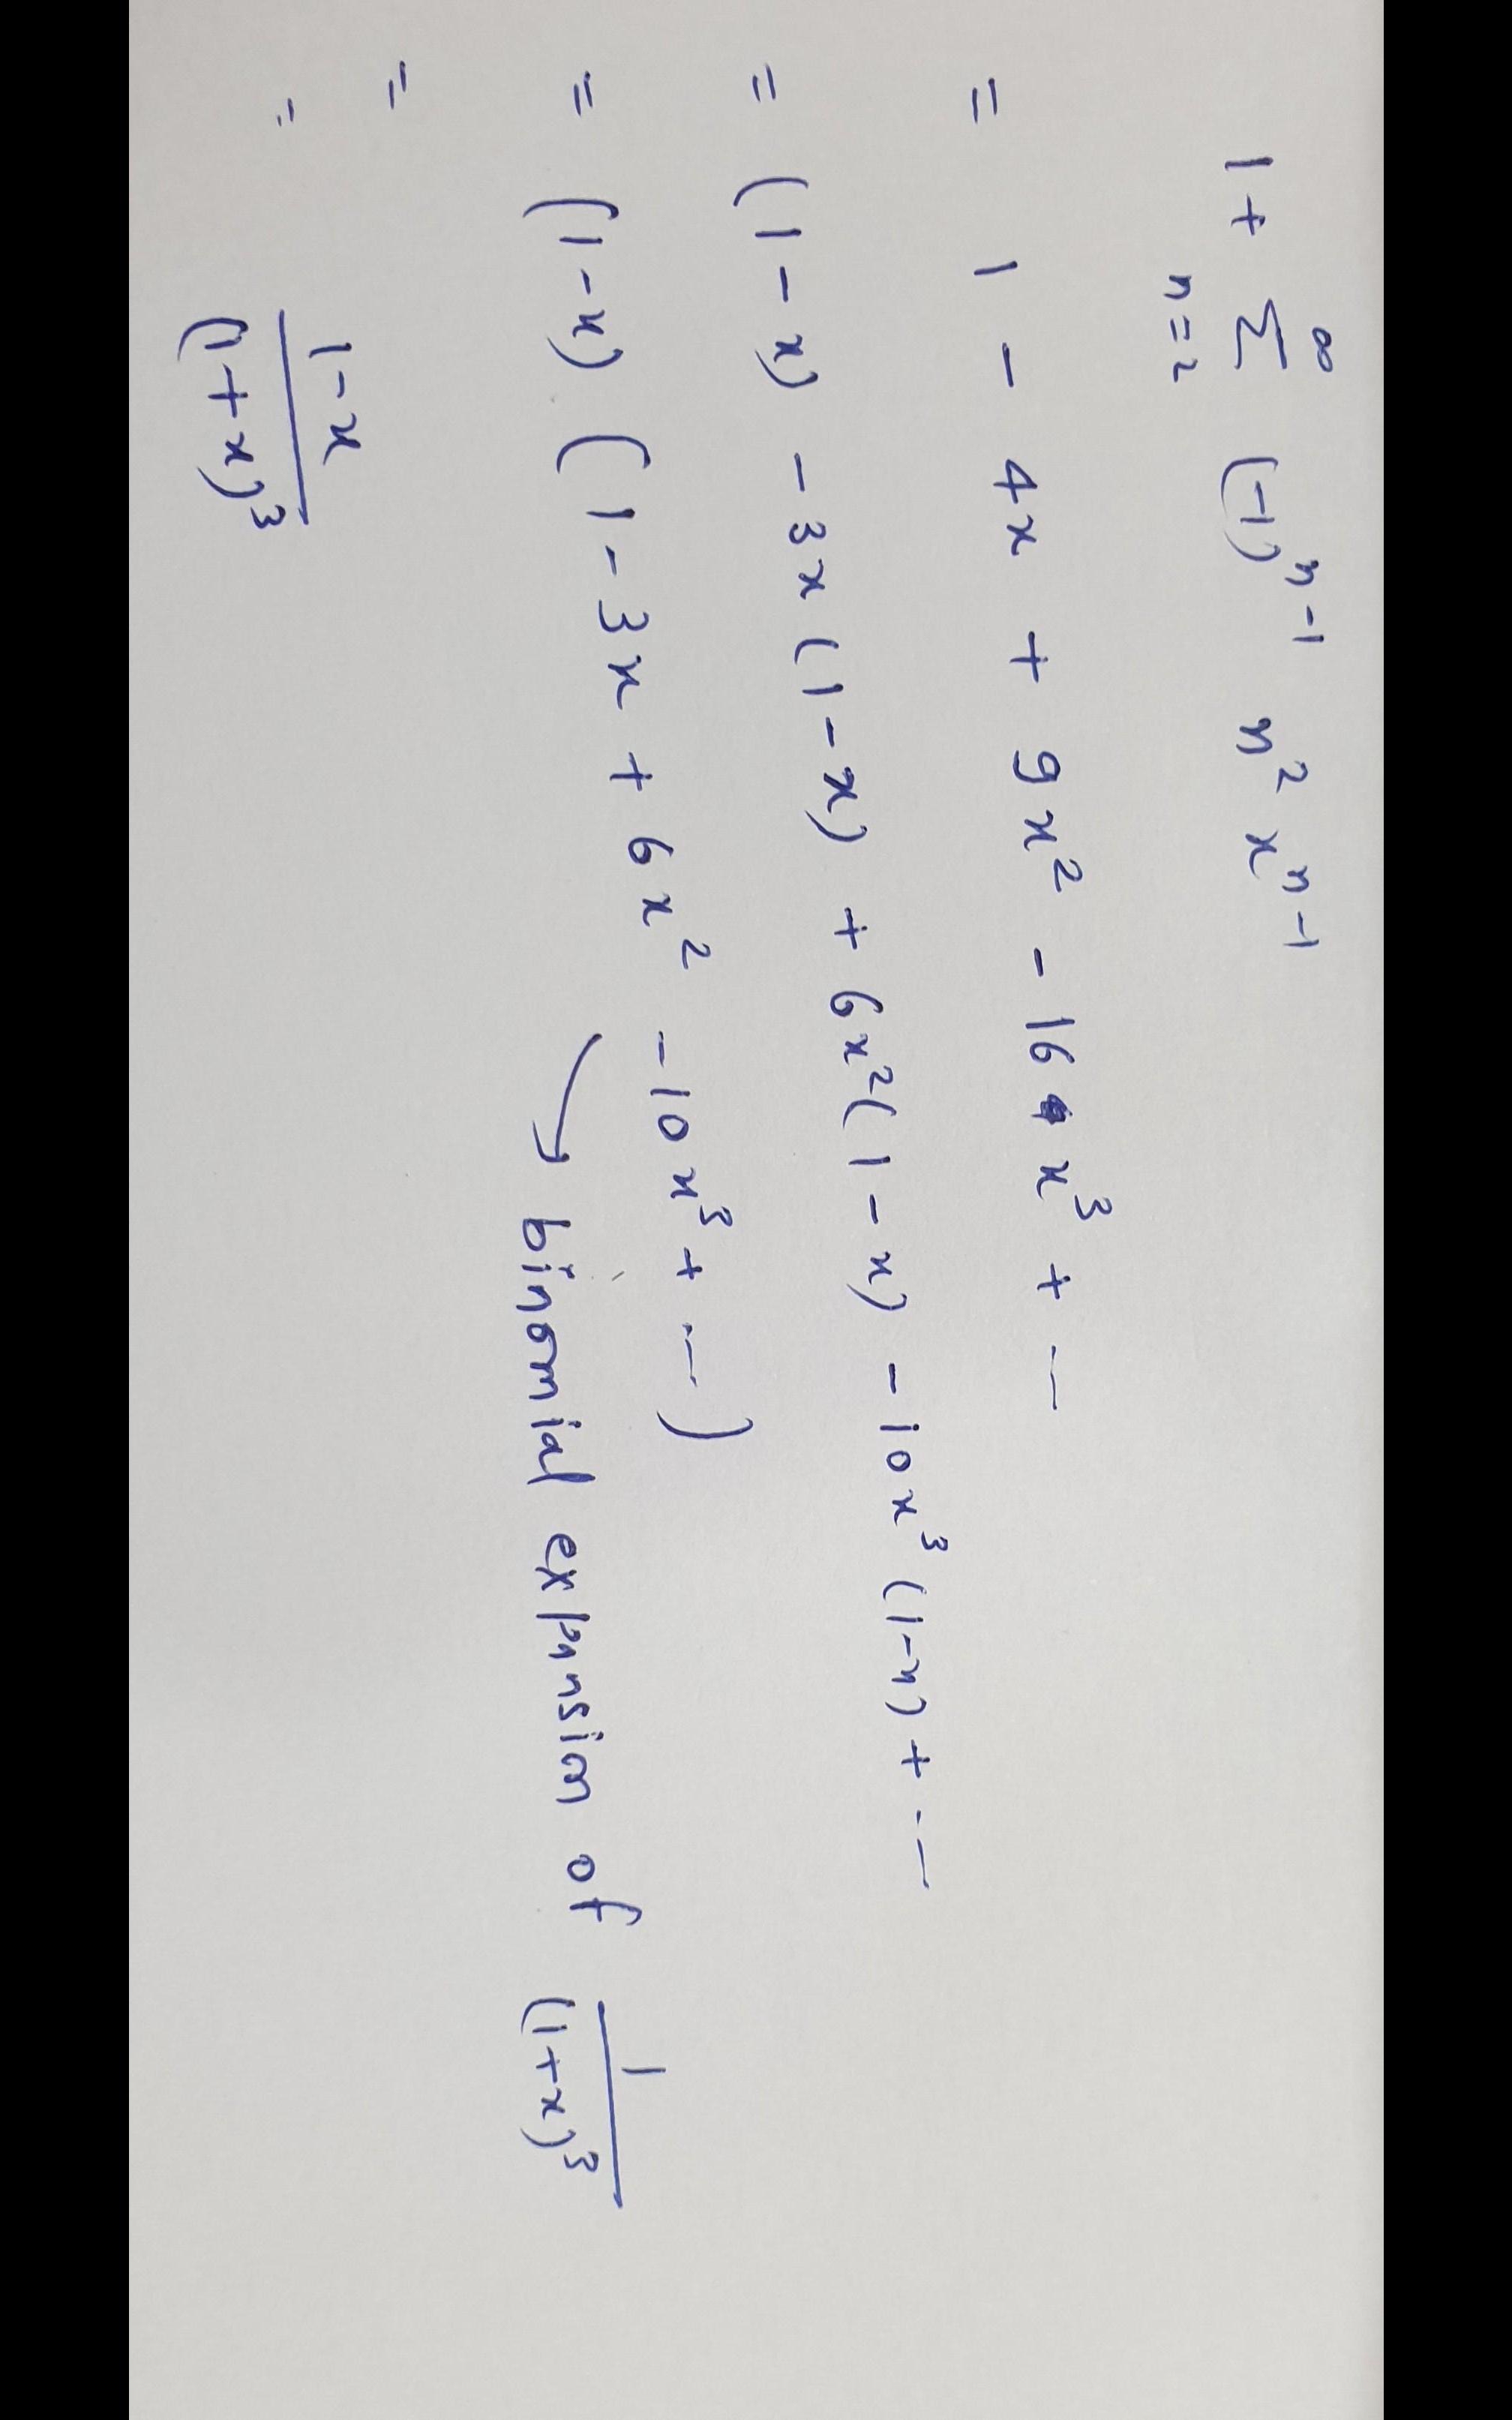 1 + ∑_{n=2}^{∞} (-1)^{n-1} n² x^{n-1}
= 1 - 4x + 9x² - 16 x³ + ...
= (1 - x) - 3x (1 - x) + 6x² (1 - x) - 10x³ (1-x) + ...
= (1-x) (1 - 3x + 6x² - 10x³ + ...)
→ binomial expansion of 1/(1+x)³
=
= (1-x)/(1+x)³